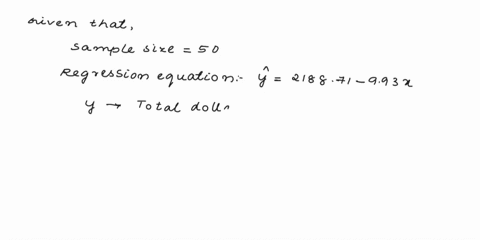 Given that,
Sample size = 50
Regression equation:- ŷ = 2188.71 - 9.93x
y → Total doll